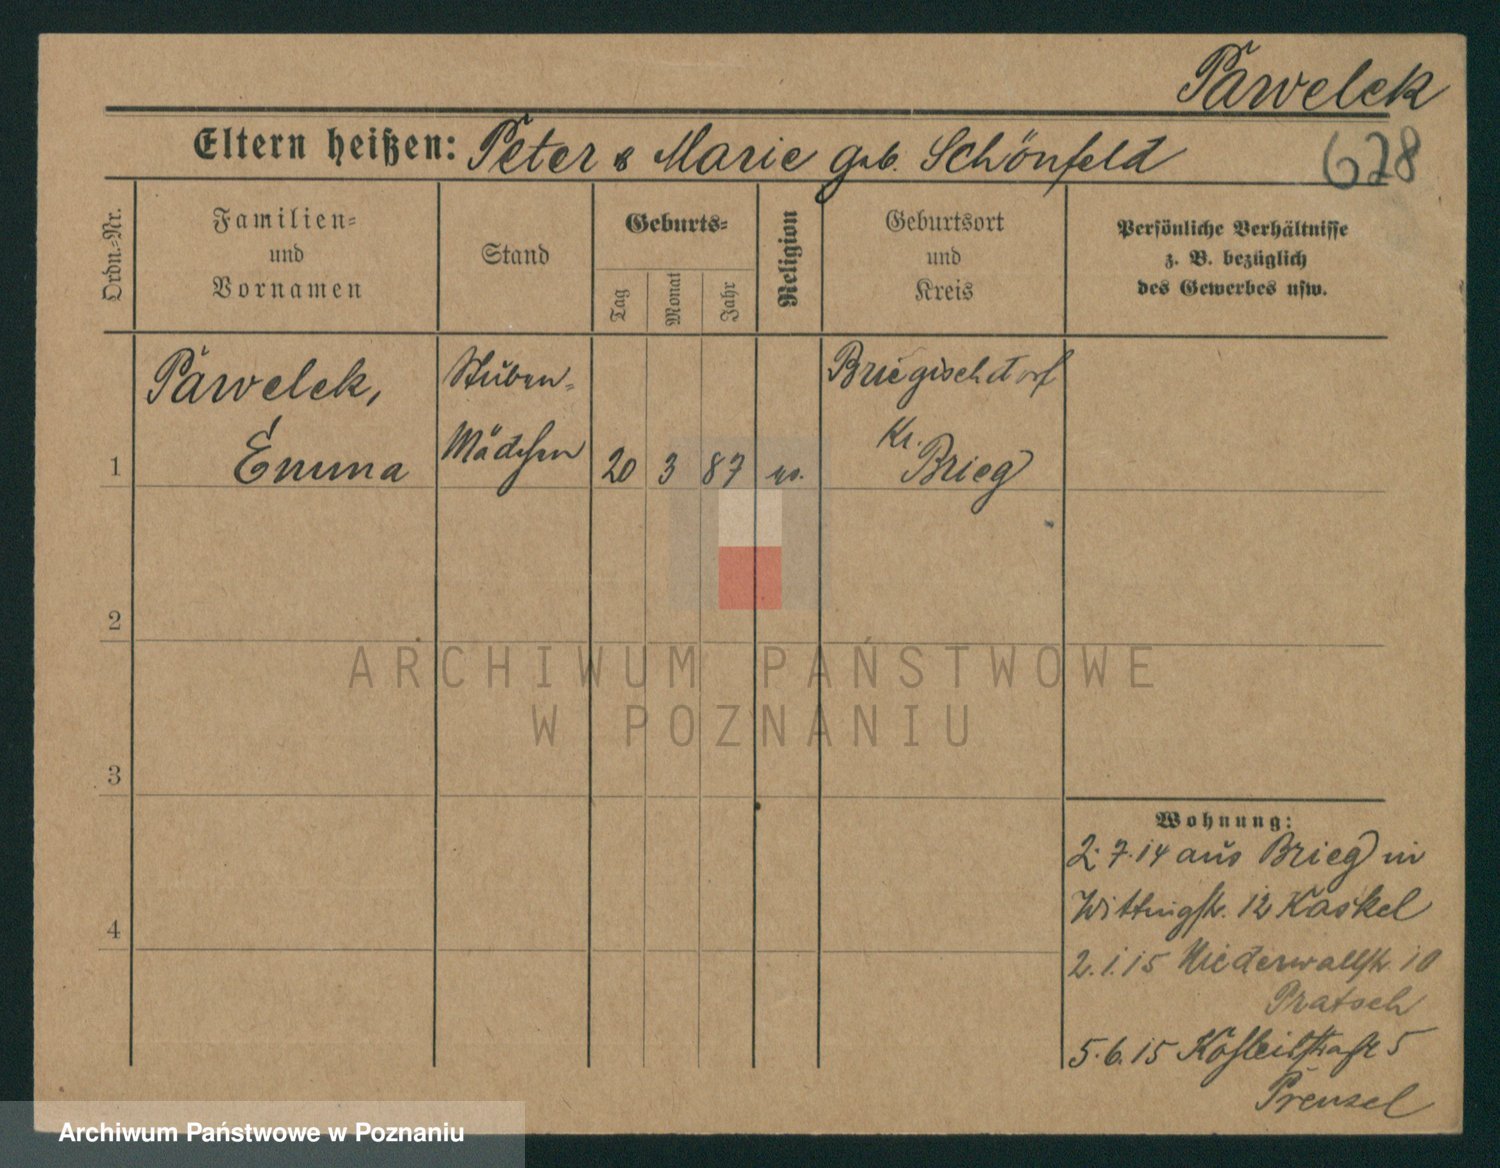 Pawelek
Eltern heißen: Peter & Marie geb. Schönfeld
628
Ordn.=Nr.
Familien=
und
Vornamen
Stand
Geburts=
Tag
Monat
Jahr
Religion
Geburtsort
und
Kreis
Persönliche Verhältnisse
z. B. bezüglich
des Gewerbes usw.
1
Pawelek,
Emma
Stuben=
Mädchen
20
3
87
Briegischdorf
Kr.
Brieg
2
3
4
Wohnung:
2.7.14 aus Brieg in
12 Kaskel
2.1.15 Niederwallstr. 10
Pratsch
5.6.15 5
Prenzel
ARCHIWUM PAŃSTWOWE
W POZNANIU
Archiwum Państwowe w Poznaniu